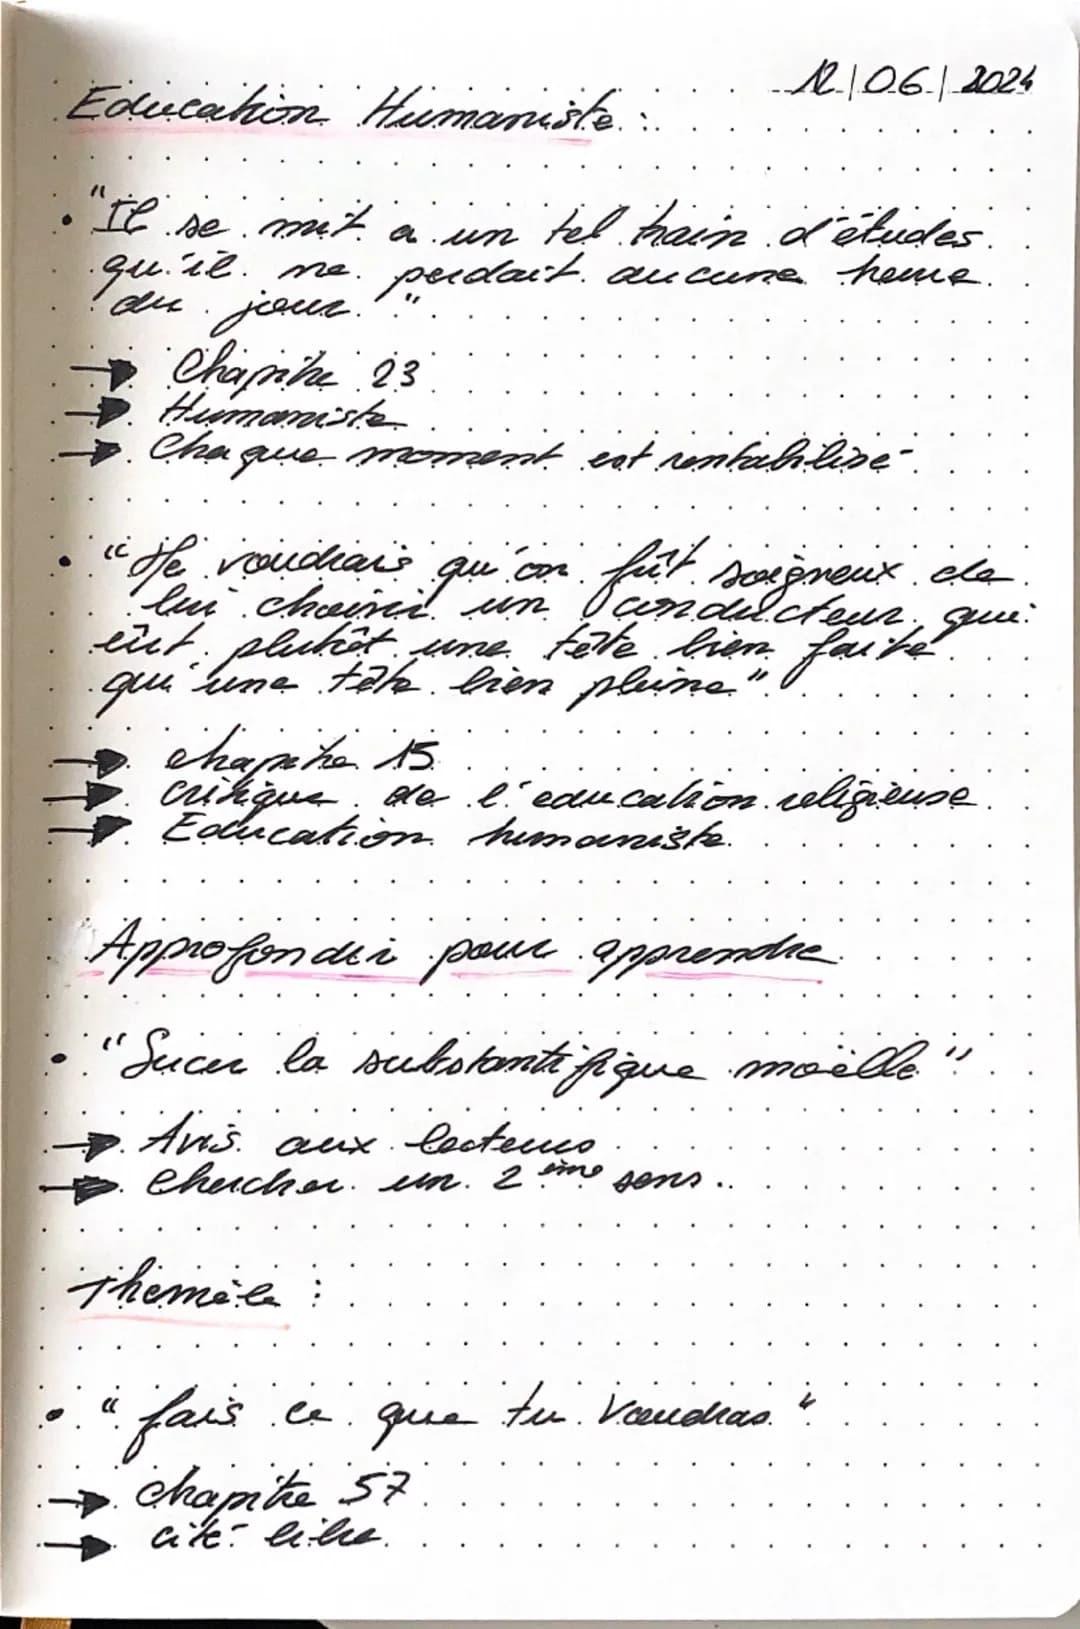 12/06/2024
Education Humaniste :
• "Il se mit a un tel train d'études
qu'il ne perdait aucune heure
du jour."
→ Chapitre 23
→ Humaniste
→ Chaque moment est rentabilisé.
• "Je voudrais qu'on fût soigneux de
lui choisir un conducteur qui
eût plutôt une tête bien faite
qu'une tête bien pleine"
→ chapitre 15
→ Critique de l'education religieuse
→ Education humaniste.
Approfondir pour apprendre
• "Sucer la substantifique moëlle"
→ Avis aux lecteurs
→ Chercher un 2ème sens.
Themèle :
• "fais ce que tu Voudras"
→ chapitre 57
→ cité libre.